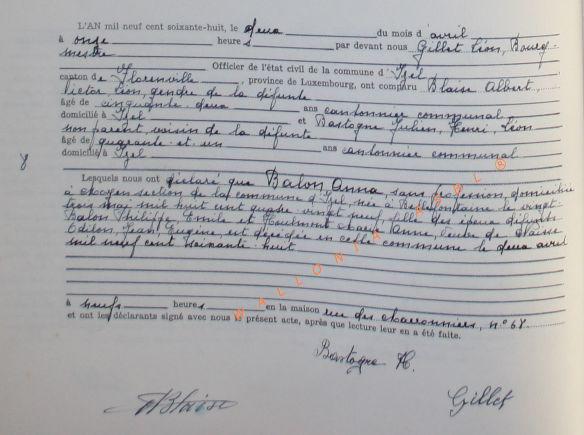 L'AN mil neuf cent soixante-huit, le deux du mois d'avril
à onze heures par devant nous Gillet Léon, Bourg-
mestre
Officier de l'état civil de la commune d'Izel
canton de Florenville, province de Luxembourg, ont comparu Blaise Albert,
Victor, Léon, gendre de la défunte
âgé de cinquante-deux ans cantonnier communal,
domicilié à Izel et Bastogne Julien, Henri, Léon
non parent, voisin de la défunte
âgé de quarante et un ans cantonnier communal
8
domicilié à Izel
Lesquels nous ont déclaré que Balon, Anna, sans profession, domiciliée
à section de la commune d'Izel, née à Bellefontaine le vingt-
trois mai mil huit cent quatre vingt neuf, fille des époux défunts
Balon Philippe, Emile et Marie Anne, veuve de Blaise
Odilon, Jean, Eugène, est décédée en cette commune le deux avril
mil neuf cent soixante-huit
à neuf heures en la maison rue des charronniers, n° 68.
et ont les déclarants signé avec nous le présent acte, après que lecture leur en a été faite.
WALLONIA ASBL ®
Bastogne H.
Blaise
Gillet